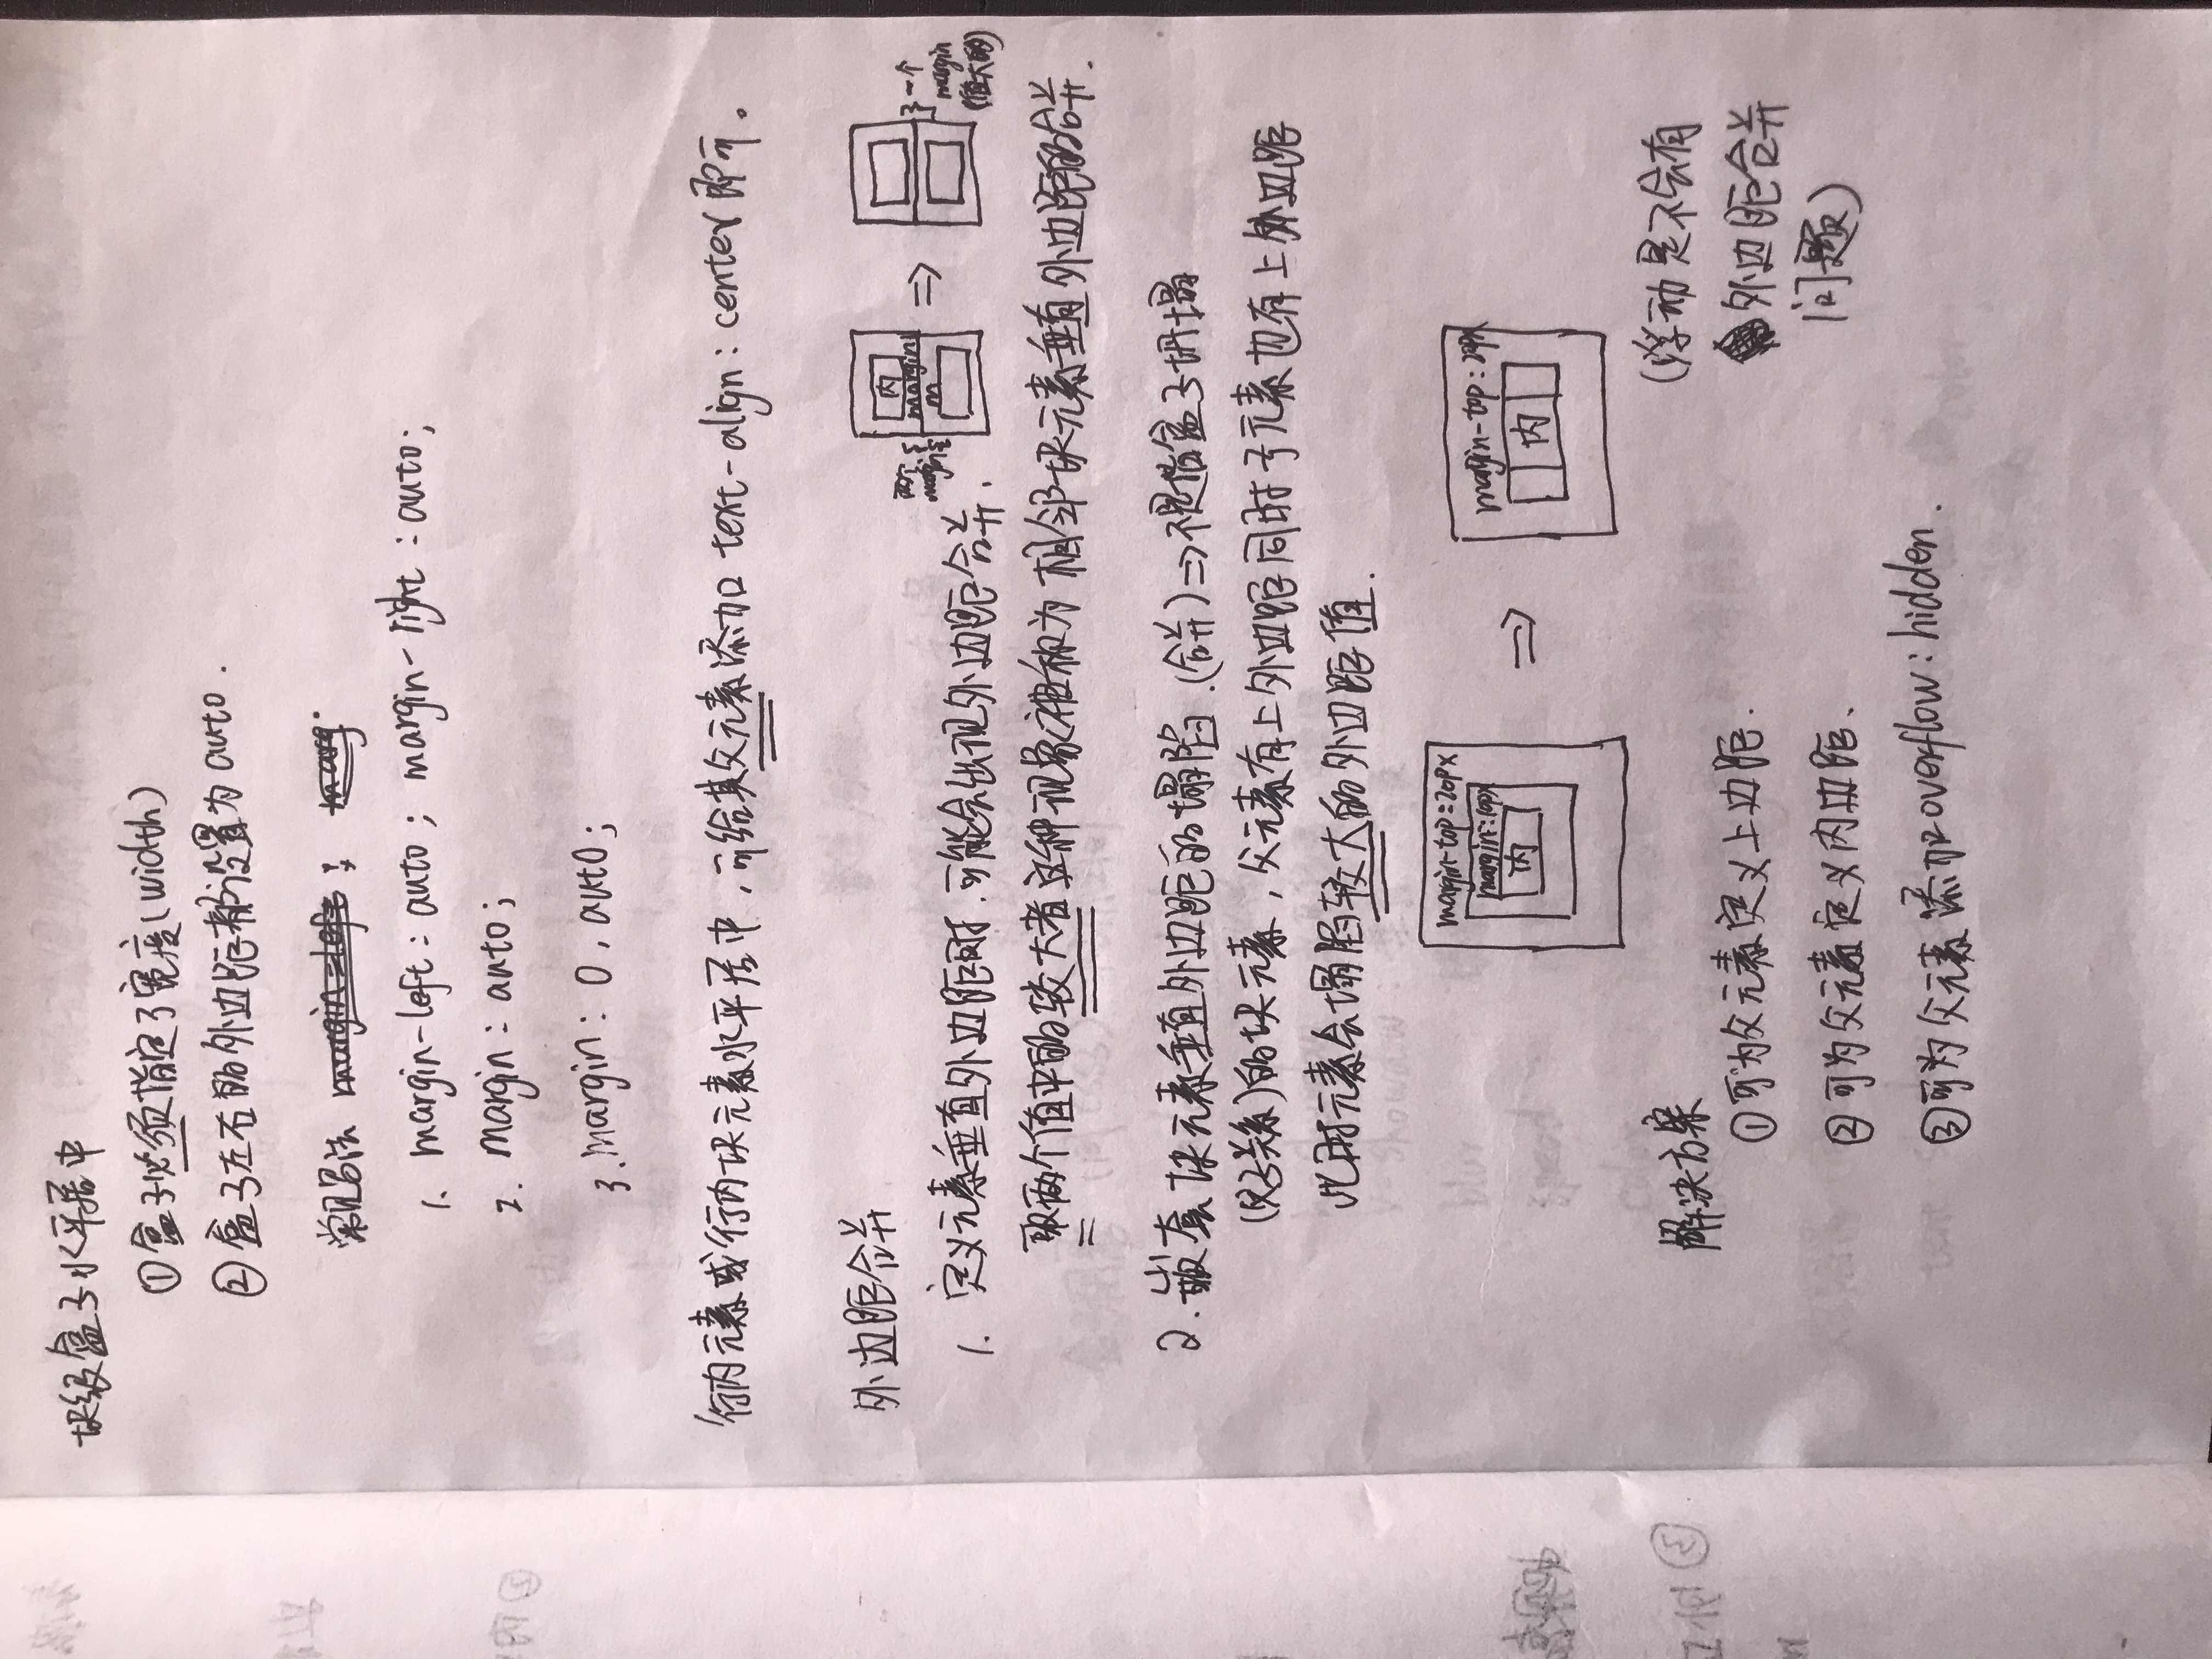 块级盒子水平居中
①盒子必须指定了宽度(width)
②盒子左右的外边距都设置为auto.
常见写法 margin-left ; marg
1. margin-left: auto; margin-right: auto;
2. margin: auto;
3. margin: 0, auto;
行内元素或行内块元素水平居中,可给其父元素添加 text-align: center 即可。
外边距合并
内
margin
m
两个
margin
一个
margin
(值大的)
1. 定义元素垂直外边距时.可能会出现外边距合并.
取两个值中的较大者这种现象被称为相邻块元素垂直外边距的合并.
2. 嵌套块元素垂直外边距的塌陷.(合并)⇒不是指盒子坍塌
(父子关系)的块元素,父元素有上外边距同时子元素也有上外边距
此时元素会塌陷较大的外边距值.
margin-top:20px
margin:10px
内
⇒
margin-top:20px
内
解决方案
①可为父元素定义上边距.
②可为父元素定义内边距.
③可为父元素添加overflow: hidden.
(浮动是不会有
外边距合并
问题)